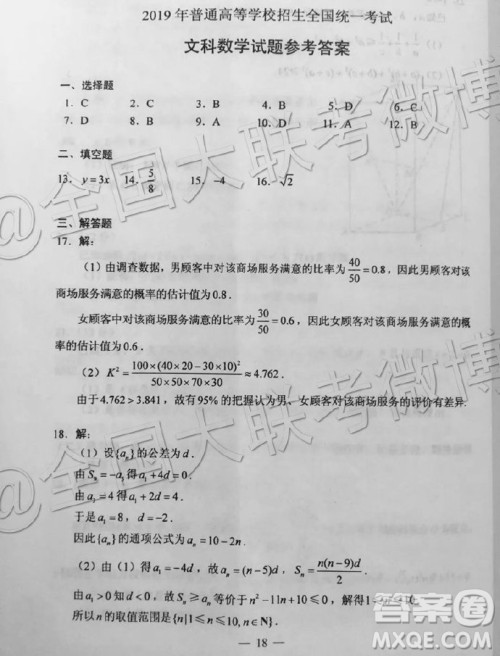 2019年普通高等学校招生全国统一考试
文科数学试题参考答案
一、选择题
1. C 2. C 3. B 4. B 5. D 6. C
7. D 8. D 9. B 10. D 11. A 12. B
二、填空题
13. y=3x 14. 5/8 15. -4 16. -√2
三、解答题
17. 解：
（1）由调查数据，男顾客中对该商场服务满意的比率为40/50=0.8，因此男顾客对该
商场服务满意的概率的估计值为0.8.
女顾客中对该商场服务满意的比率为30/50=0.6，因此女顾客对该商场服务满意的概
率的估计值为0.6.
（2）K²=100×(40×20-30×10)²/50×50×70×30≈4.762.
由于4.762>3.841，故有95%的把握认为男、女顾客对该商场服务的评价有差异.
18. 解：
（1）设{aₙ}的公差为d.
由S₉=-a₅得a₁+4d=0.
由a₃=4得a₁+2d=4.
于是a₁=8，d=-2.
因此{aₙ}的通项公式为aₙ=10-2n.
（2）由（1）得a₁=-4d，故aₙ=(n-5)d，Sₙ=n(n-9)d/2.
由a₁>0知d<0，故Sₙ≥aₙ等价于n²-11n+10≤0，解得1≤n≤10
所以n的取值范围是{n|1≤n≤10, n∈N}.
— 18 —
@全国大联考微博
@全国大联考微博
答案圈
MXQE.COM